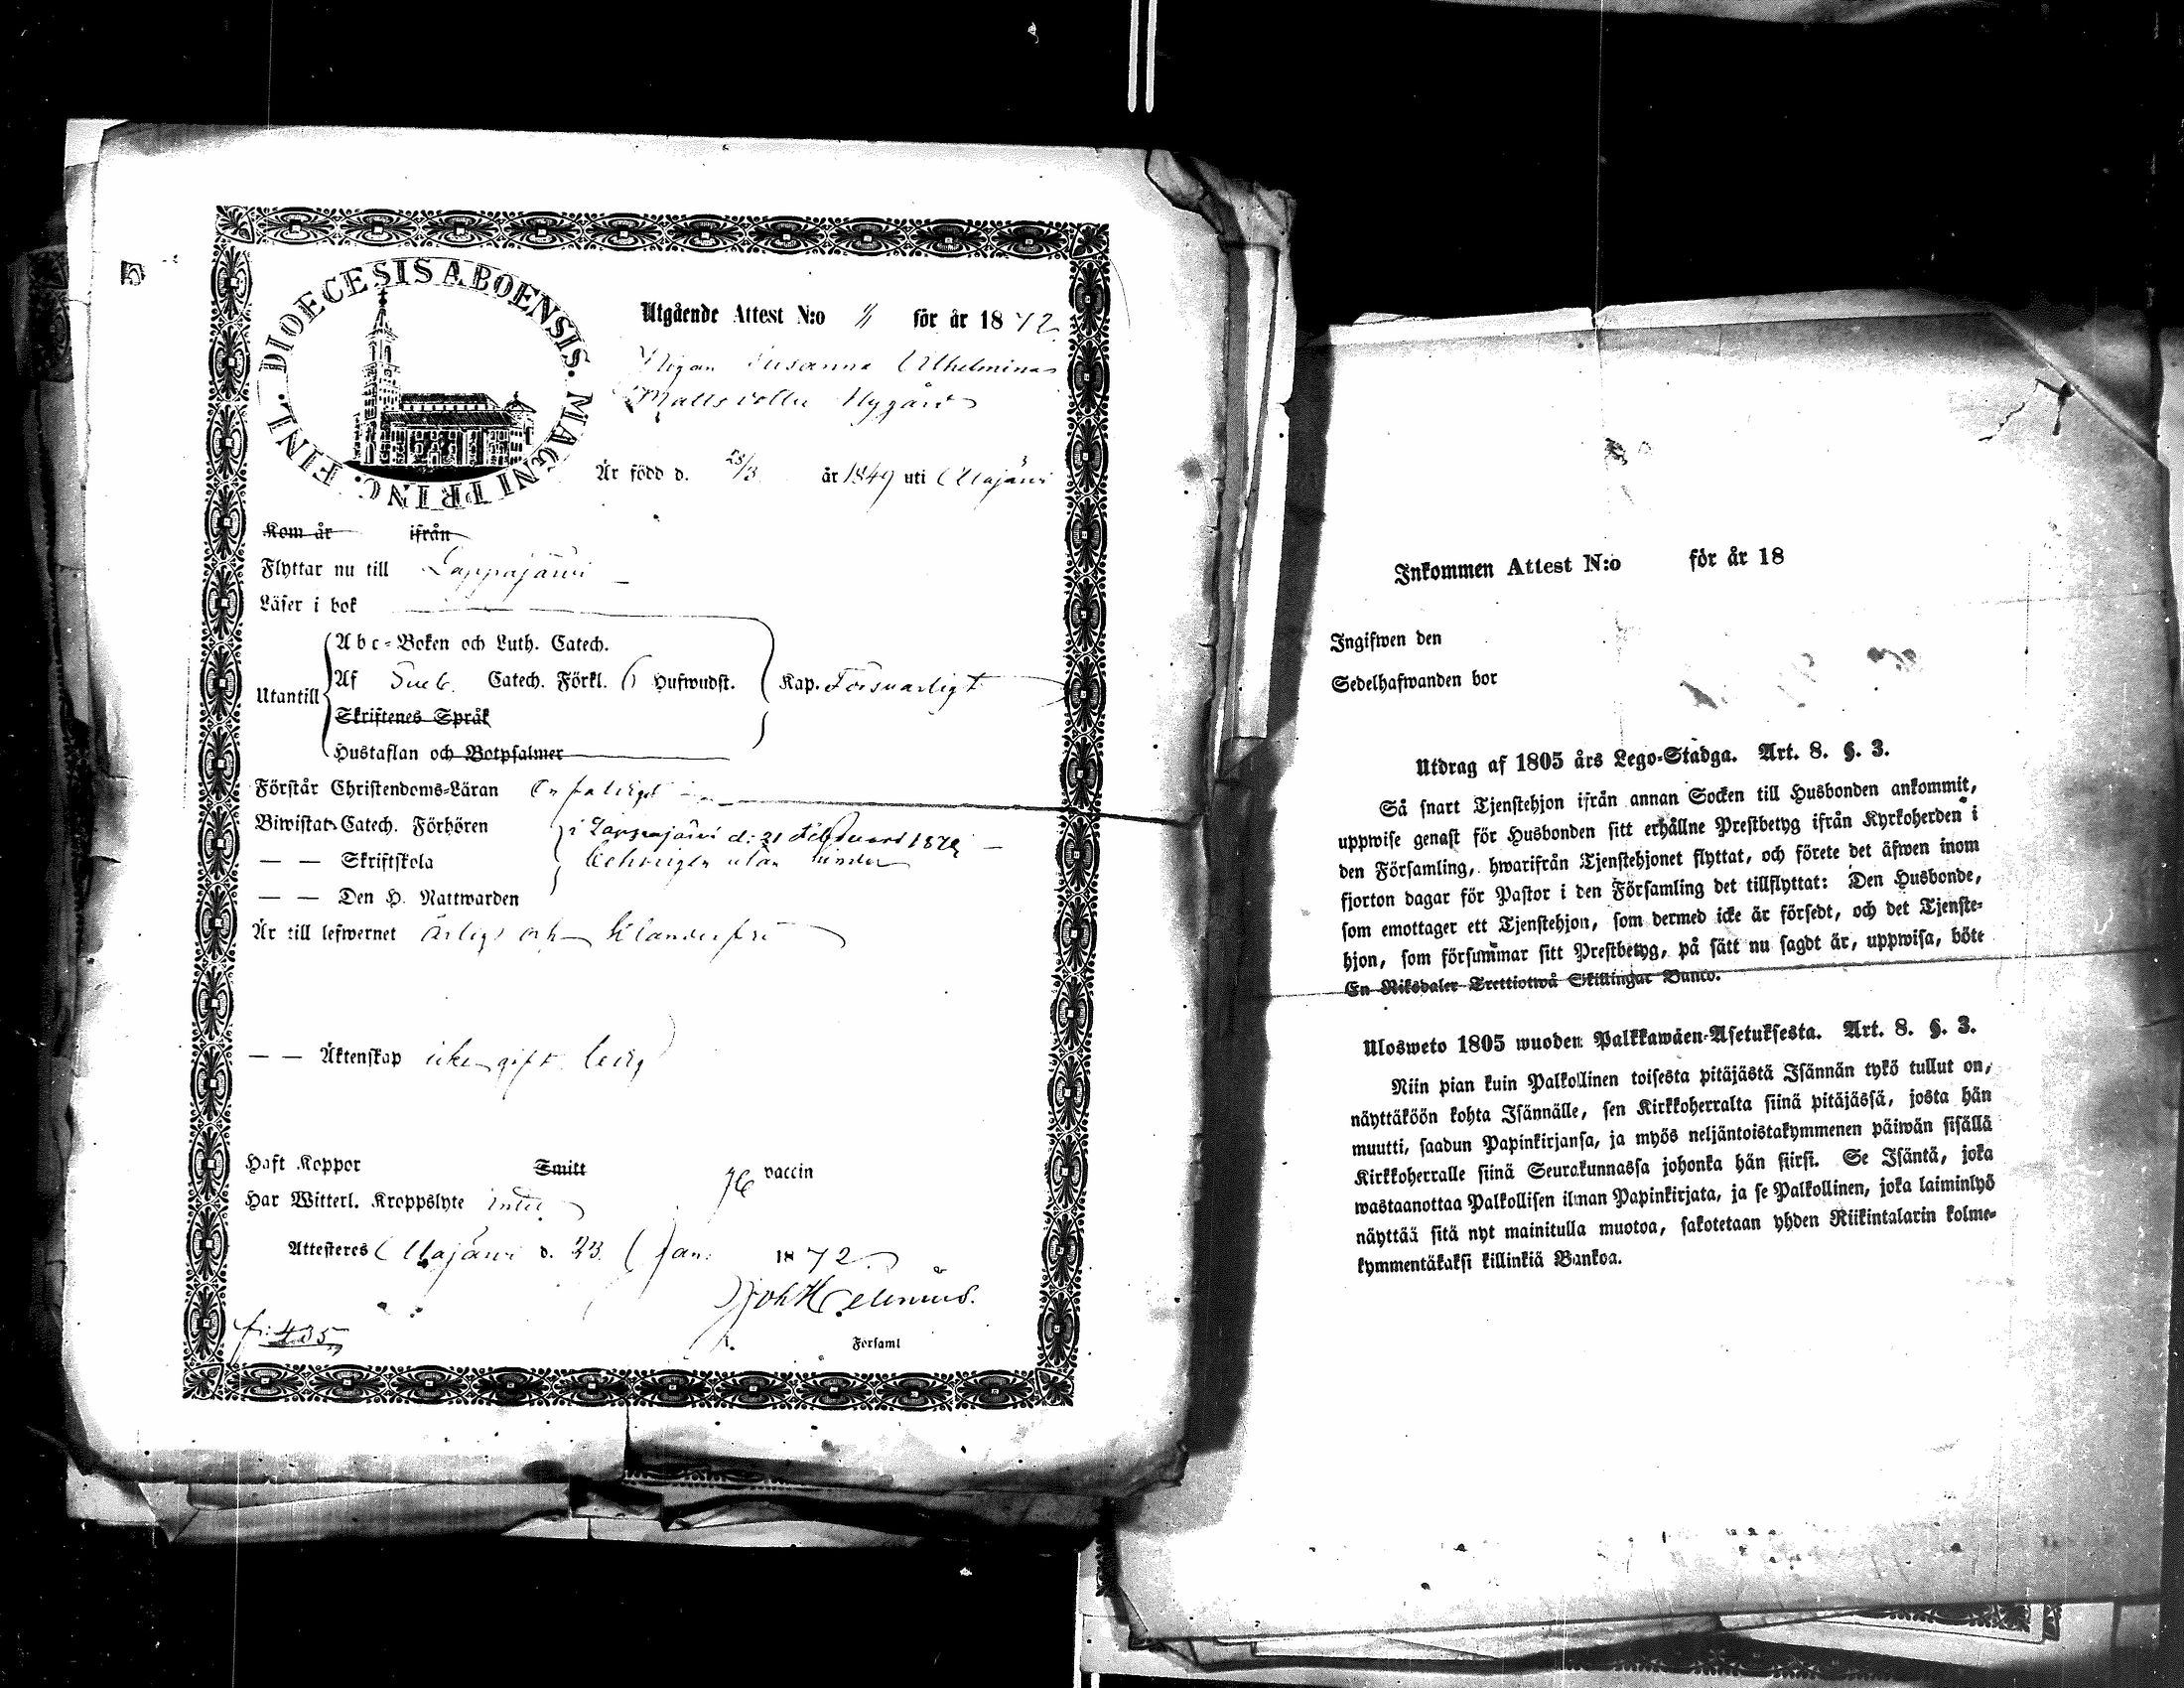 DIOECESIS ABOENSIS. MAGNI PRINC. FINL.
Utgående Attest N:o 4 för år 1872
Pigan Susanna Wilhelmina
Mattsdotter Nygård
Är född d. 23/3 år 1849 uti Alajärvi
Kom år ifrån
Flyttar nu till Lappajärvi
Läser i bok
Utantill
Abc-Boken och Luth. Catech.
Af Sveb. Catech. Förkl. 6 Hufwudst.
Kap. Försvarligt
Skriftenes Språk
Hustaflan och Botpsalmer
Förstår Christendoms-Läran
Biwistat Catech. Förhören i Lappajärvi d: 21 Februari 1872
— — Skriftskola behörigen utan
— — Den H. Nattwarden
Är till lefwernet ärlig och klanderfri
— — Äktenskap icke gift ledig
Haft Koppor Smitt vaccin
Har Witterl. Kroppslyte intet
Attesteras Alajärvi d. 23 Jan: 1872
Joh Helenius.
Forsaml
Inkommen Attest N:o för år 18
Ingifwen den
Sedelhafwanden bor
Utdrag af 1805 års Lego-Stadga. Art. 8. §. 3.
Så snart Tjenstehjon ifrån annan Socken till Husbonden ankommit,
uppwise genast för Husbonden sitt erhållne Prestbetyg ifrån Kyrkoherden i
den Församling, hwarifrån Tjenstehjonet flyttat, och förete det äfwen inom
fjorton dagar för Pastor i den Församling det tillflyttat: Den Husbonde,
som emottager ett Tjenstehjon, som dermed icke är försedt, och det Tjenste-
hjon, som försummar sitt Prestbetyg, på sätt nu sagdt är, uppwisa, böte
En Riksdaler Trettiotwå Skillingar Banco.
Ulosweto 1805 wuoden Palkkawäen-Asetuksesta. Art. 8. §. 3.
Niin pian kuin Palkollinen toisesta pitäjästä Isännän tykö tullut on,
näyttäköön kohta Isännälle, sen Kirkkoherralta siinä pitäjässä, josta hän
muutti, saadun Papinkirjansa, ja myös neljäntoistakymmenen päiwän sisällä
Kirkkoherralle siinä Seurakunnassa johonka hän siirsi. Se Isäntä, joka
wastaanottaa Palkollisen ilman Papinkirjata, ja se Palkollinen, joka laiminlyö
näyttää sitä nyt mainitulla muotoa, sakotetaan yhden Riikintalarin kolme-
kymmentäkaksi killinkiä Bankoa.